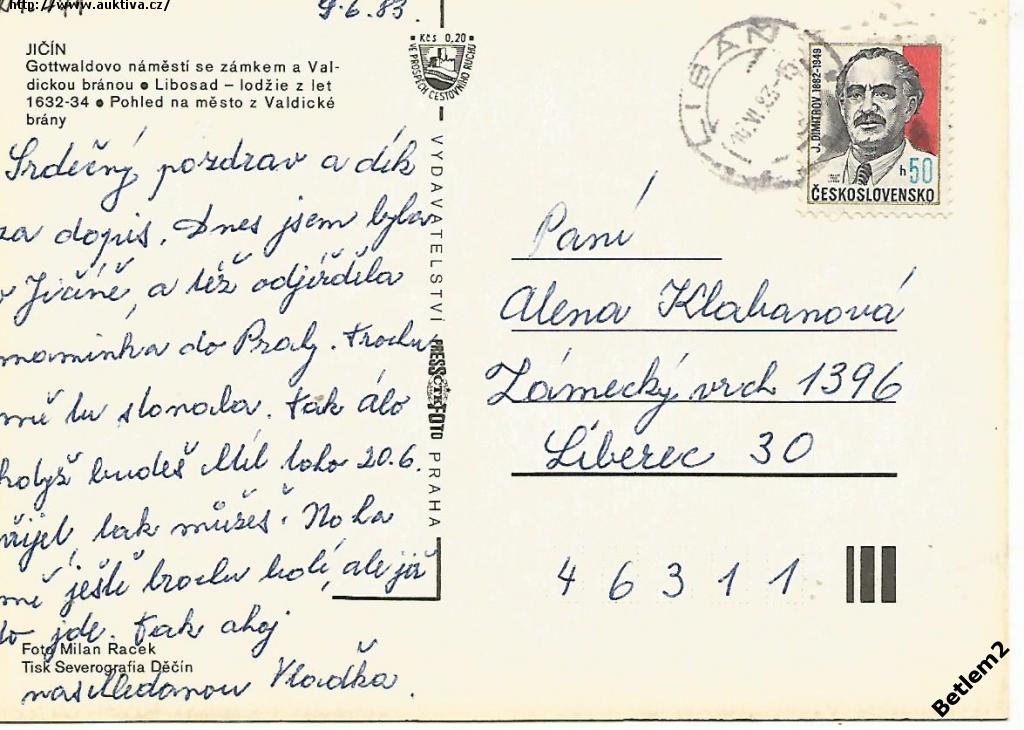 http://www.auktiva.cz/
9.6.83.
JIČÍN
Gottwaldovo náměstí se zámkem a Val-
dickou bránou ● Libosad – lodžie z let
1632-34 ● Pohled na město z Valdické
brány
Kčs 0,20
VE PROSPĚCH CESTOVNÍHO RUCHU
Srdečný pozdrav a dík
za dopis. Dnes jsem byla
Jičíně, a též odjížděla
maminka do Prahy. Trochu
mě tu stonala. Tak
budeš Míl toho 20.6.
tak můžeš. Noha
mě ještě trochu bolí, ale již
to jde. Tak ahoj
nashledanou Vlaďka.
Foto Milan Racek
Tisk Severografia Děčín
VYDAVATELSTVÍ PRESSFOTO PRAHA
ČTK
LIBÁŇ
10.VI.83-15
J. DIMITROV 1882-1949
h 50
ČESKOSLOVENSKO
Paní
Alena Klabanová
Zámecký vrch 1396
Liberec 30
46311
Betlem2